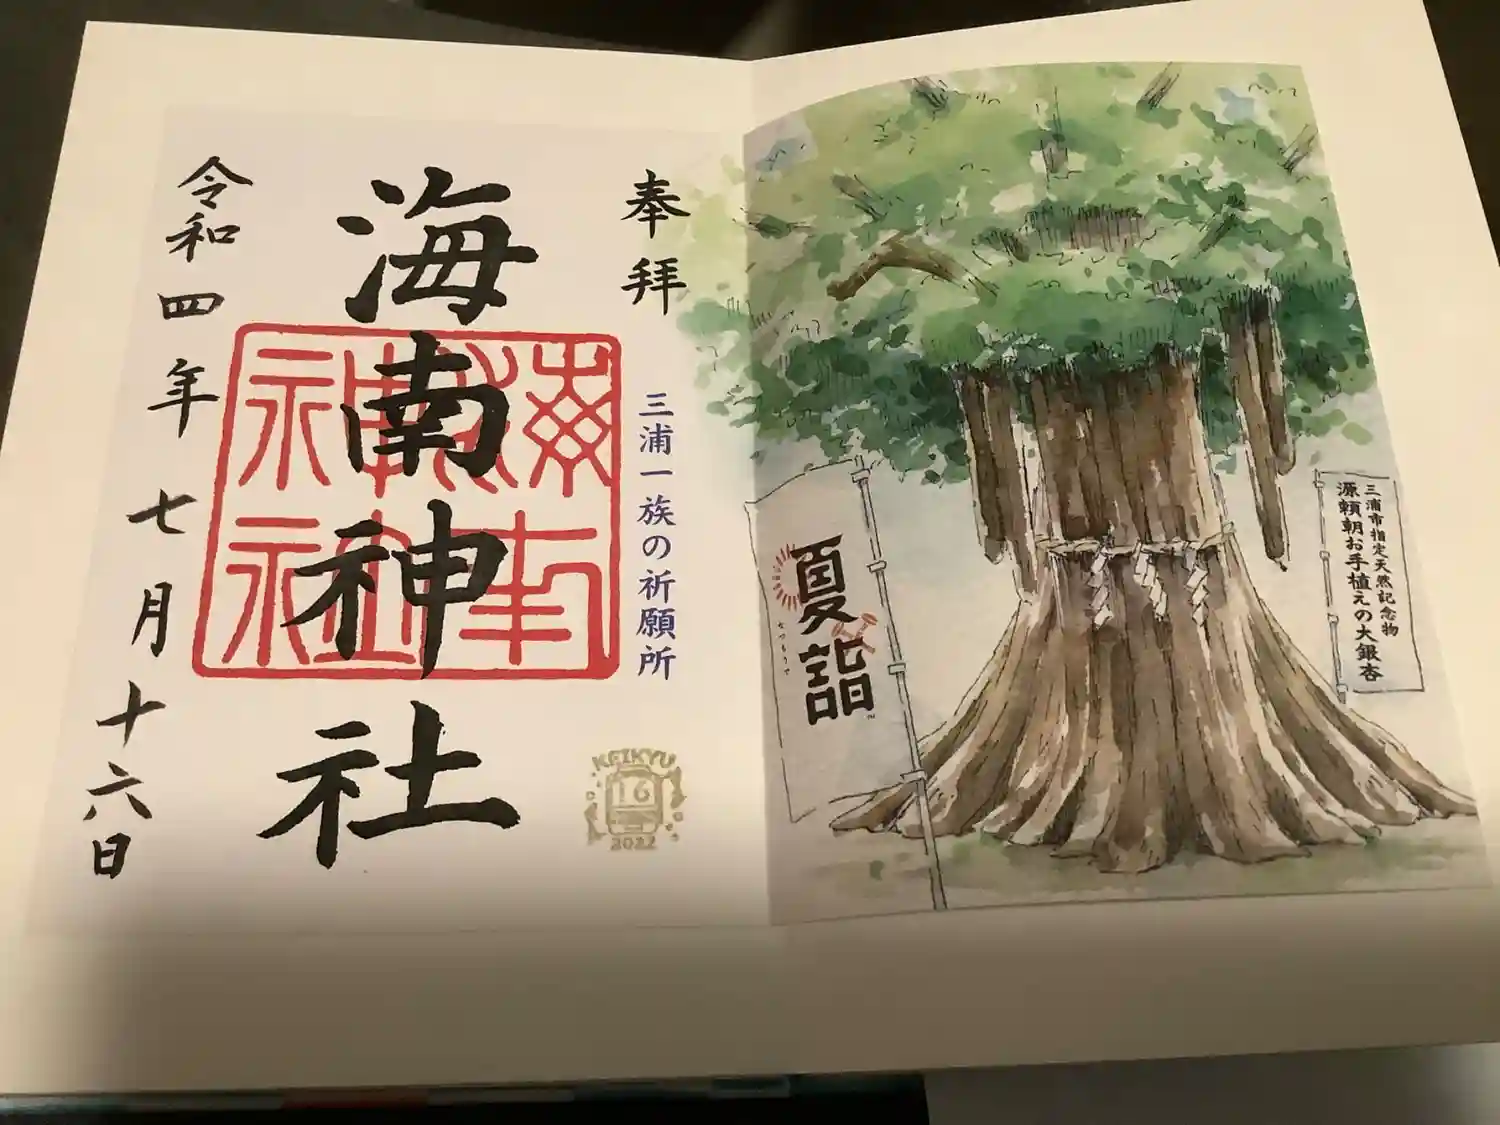 三浦市指定天然記念物
源頼朝お手植えの大銀杏
夏詣
奉拝
三浦一族の祈願所
海南神社
令和四年七月十六日
KEIKYU
16
2022